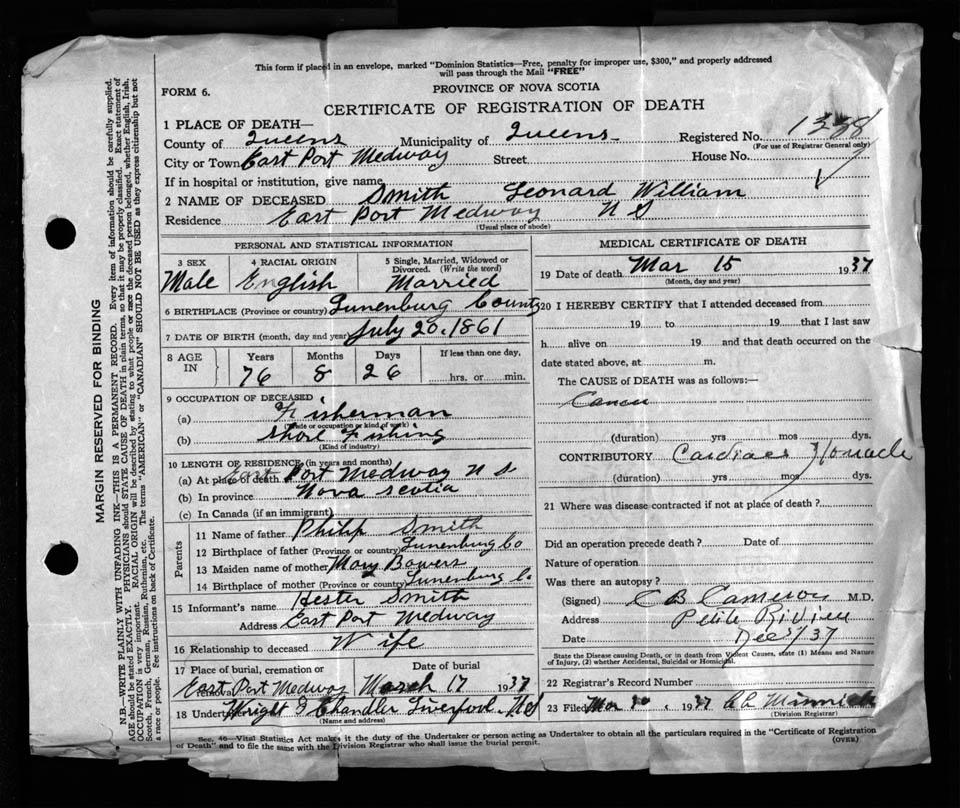 This form if placed in an envelope, marked "Dominion Statistics—Free, penalty for improper use, $300," and properly addressed
will pass through the Mail "FREE"
FORM 6.
PROVINCE OF NOVA SCOTIA
CERTIFICATE OF REGISTRATION OF DEATH
1 PLACE OF DEATH—
County of Queens Municipality of Queens Registered No.
(For use of Registrar General only)
City or Town East Port Medway Street House No.
If in hospital or institution, give name
2 NAME OF DECEASED Smith Leonard William
Residence East Port Medway N S
(Usual place of abode)
PERSONAL AND STATISTICAL INFORMATION
3 SEX 4 RACIAL ORIGIN 5 Single, Married, Widowed or
Divorced. (Write the word)
Male English Married
6 BIRTHPLACE (Province or country) Lunenburg County
7 DATE OF BIRTH (month, day and year) July 20, 1861
8 AGE IN Years Months Days If less than one day,
76 8 26 hrs. or min.
9 OCCUPATION OF DECEASED
(a) Fisherman
(Trade or occupation or kind of work)
(b) Shore Fishing
(Kind of industry)
10 LENGTH OF RESIDENCE (in years and months)
(a) At place of death East Port Medway N S
(b) In province Nova Scotia
(c) In Canada (if an immigrant)
Parents
11 Name of father Philip Smith
12 Birthplace of father (Province or country) Lunenburg Co
13 Maiden name of mother Mary Bowers
14 Birthplace of mother (Province or country) Lunenburg Co
15 Informant's name Hester Smith
Address East Port Medway
16 Relationship to deceased Wife
17 Place of burial, cremation or Date of burial
East Port Medway March 17 1937
18 Undertaker Wright & Chandler Liverpool N S
(Name and address)
MEDICAL CERTIFICATE OF DEATH
19 Date of death Mar 15 1937
(Month, day and year)
20 I HEREBY CERTIFY that I attended deceased from
19 to 19 that I last saw
h alive on 19 and that death occurred on the
date stated above, at m.
The CAUSE OF DEATH was as follows:—
Cancer
(duration) yrs mos dys.
CONTRIBUTORY Cardiac
(duration) yrs mos dys.
21 Where was disease contracted if not at place of death?
Did an operation precede death? Date of
Nature of operation
Was there an autopsy?
(Signed) C B Cameron M.D.
Address Petite Riviere
Date Dec 37
State the Disease causing Death, or in death from Violent Causes, state (1) Means and Nature
of Injury, (2) whether Accidental, Suicidal or Homicidal.
22 Registrar's Record Number
23 Filed Mar 1937
(Division Registrar)
Sec. 46—Vital Statistics Act makes it the duty of the Undertaker or person acting as Undertaker to obtain all the particulars required in the "Certificate of Registration
of Death" and to file the same with the Division Registrar who shall issue the burial permit.
(OVER)
MARGIN RESERVED FOR BINDING
N.B.—WRITE PLAINLY WITH UNFADING INK—THIS IS A PERMANENT RECORD. Every item of information should be carefully supplied.
AGE should be stated EXACTLY. PHYSICIANS should STATE CAUSE OF DEATH in plain terms, so that it may be properly classified. Exact statement of
OCCUPATION is very important. RACIAL ORIGIN will be described by stating to what people or race the deceased person belonged, whether English, Irish,
Scotch, French, German, Russian, Ruthenian, etc. The terms "AMERICAN" or "CANADIAN" SHOULD NOT BE USED as they express citizenship but not
a race or people. See instructions on back of Certificate.